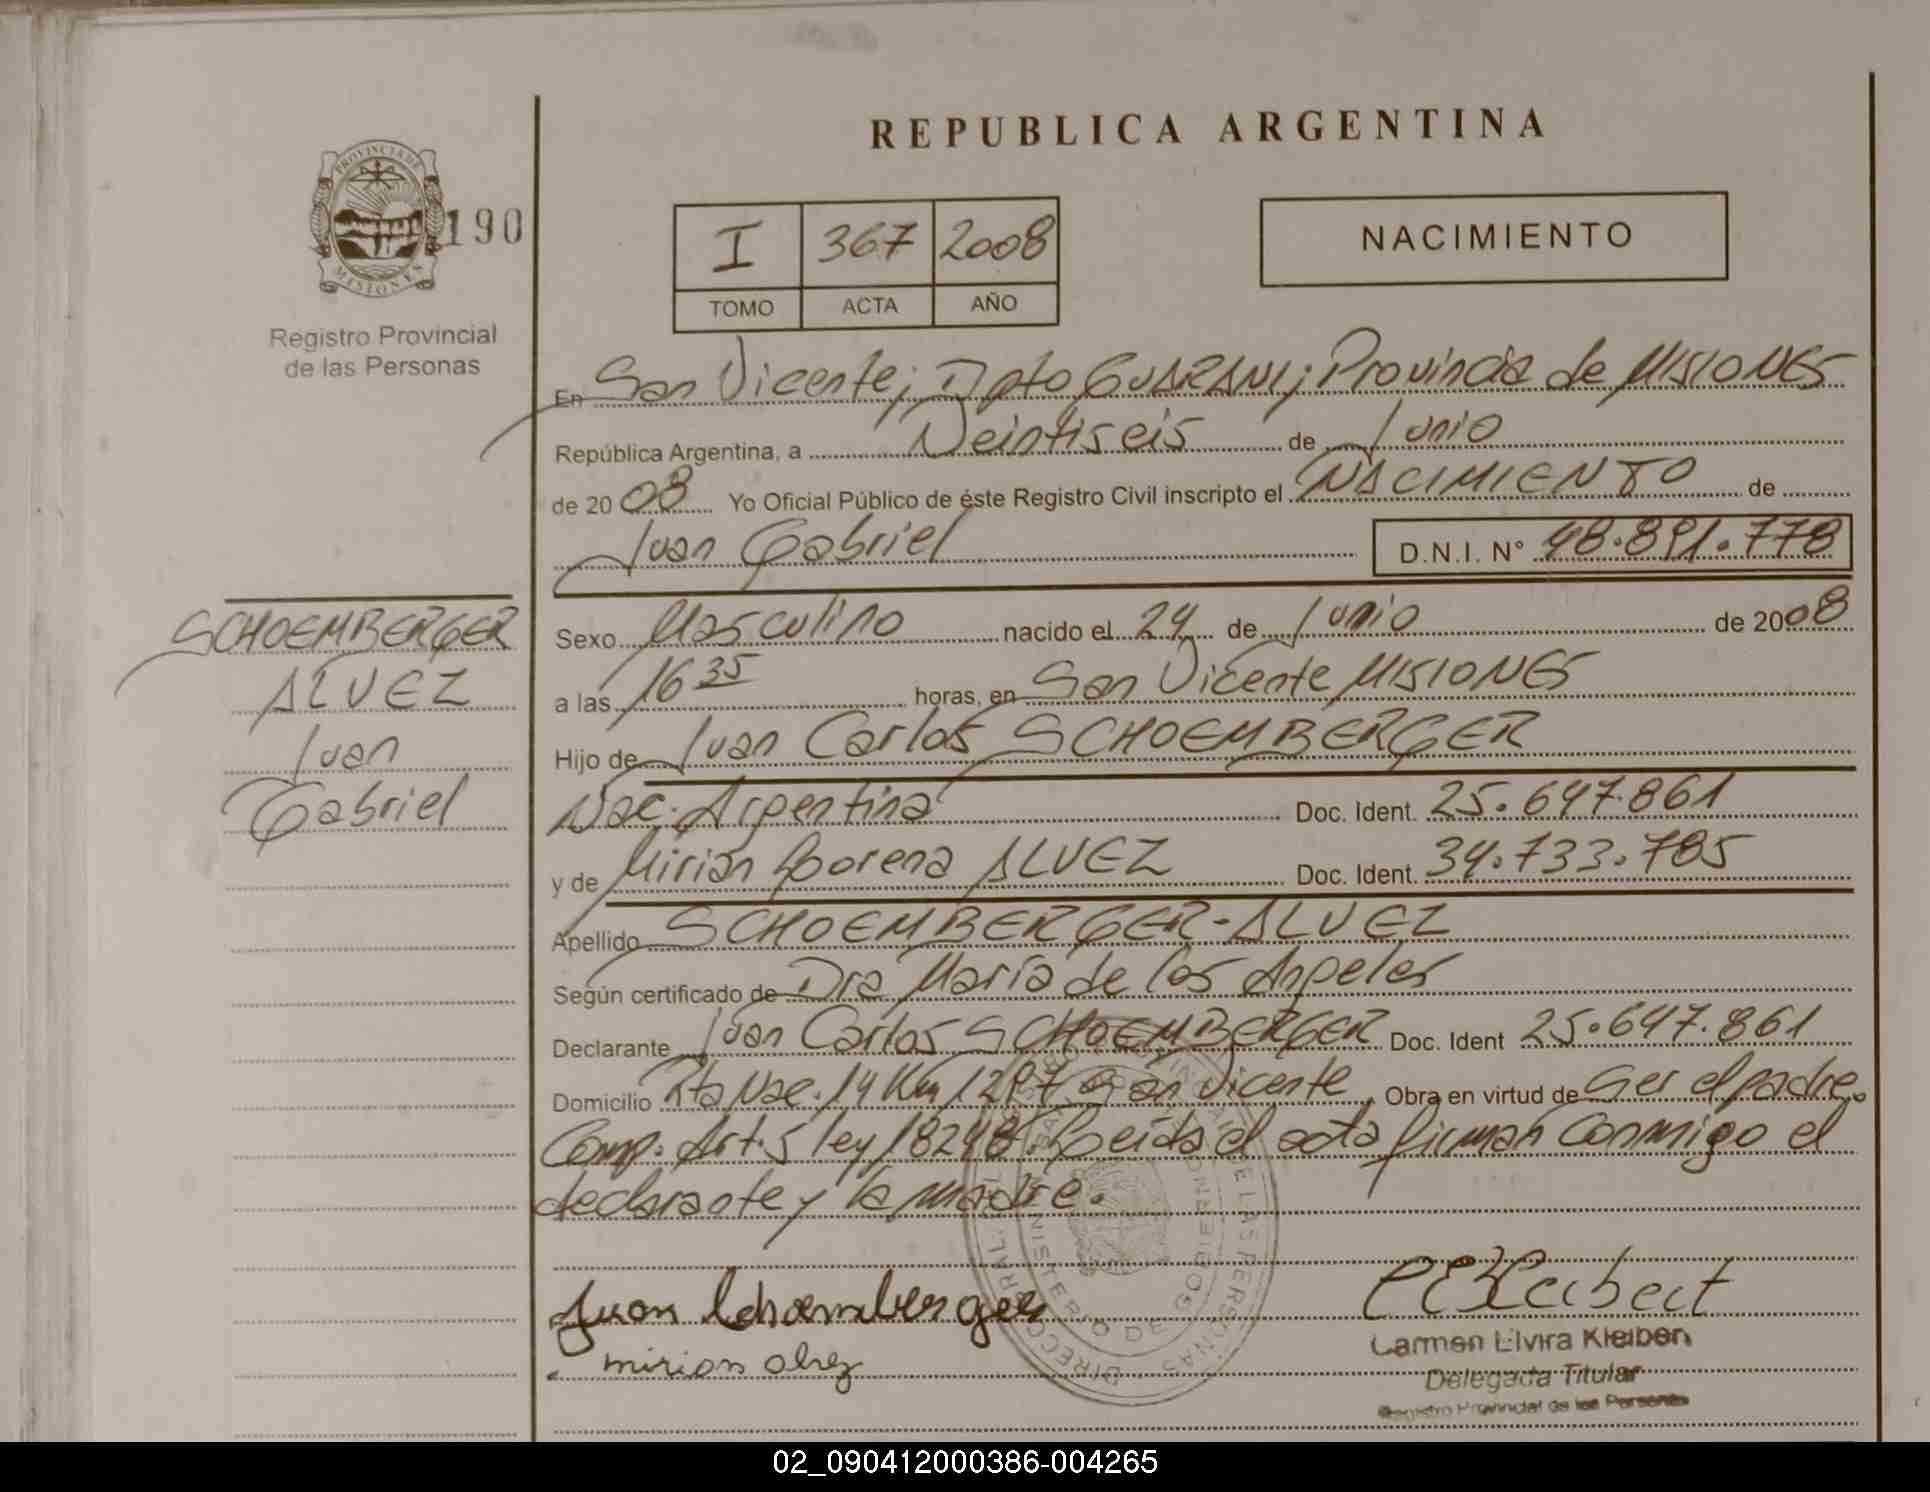 REPUBLICA ARGENTINA
PROVINCIA DE
MISIONES
190
Registro Provincial
de las Personas
I 367 2008
TOMO ACTA AÑO
NACIMIENTO
En San Vicente; Dpto GUARANI; Provincia de MISIONES
República Argentina, a Veintiseis de Junio
de 2008 Yo Oficial Público de éste Registro Civil inscripto el NACIMIENTO de
Juan Gabriel D.N.I. N° 48.891.778
SCHOEMBERGER
ALVEZ
Juan
Gabriel
Sexo Masculino nacido el 24 de Junio de 2008
a las 16 35 horas, en San Vicente MISIONES
Hijo de Juan Carlos SCHOEMBERGER
Nac. Argentina Doc. Ident. 25.647.861
y de Mirian Lorena ALVEZ Doc. Ident. 34.733.785
Apellido SCHOEMBERGER-ALVEZ
Según certificado de Dra Maria de los Angeles
Declarante Juan Carlos SCHOEMBERGER Doc. Ident 25.647.861
Domicilio Rta Nac. 14 Km 1297 San Vicente Obra en virtud de Ser el padre.
Comp. Art. 5 ley 18248. Leida el acta firman conmigo el
declarante y la madre.
Juan Schoemberger
mirian alvez
Carmen Elvira Kleibert
Delegada Titular
Registro Provincial de las Personas
MINISTERIO DE GOBIERNO
DE LAS PERSONAS
02_090412000386-004265